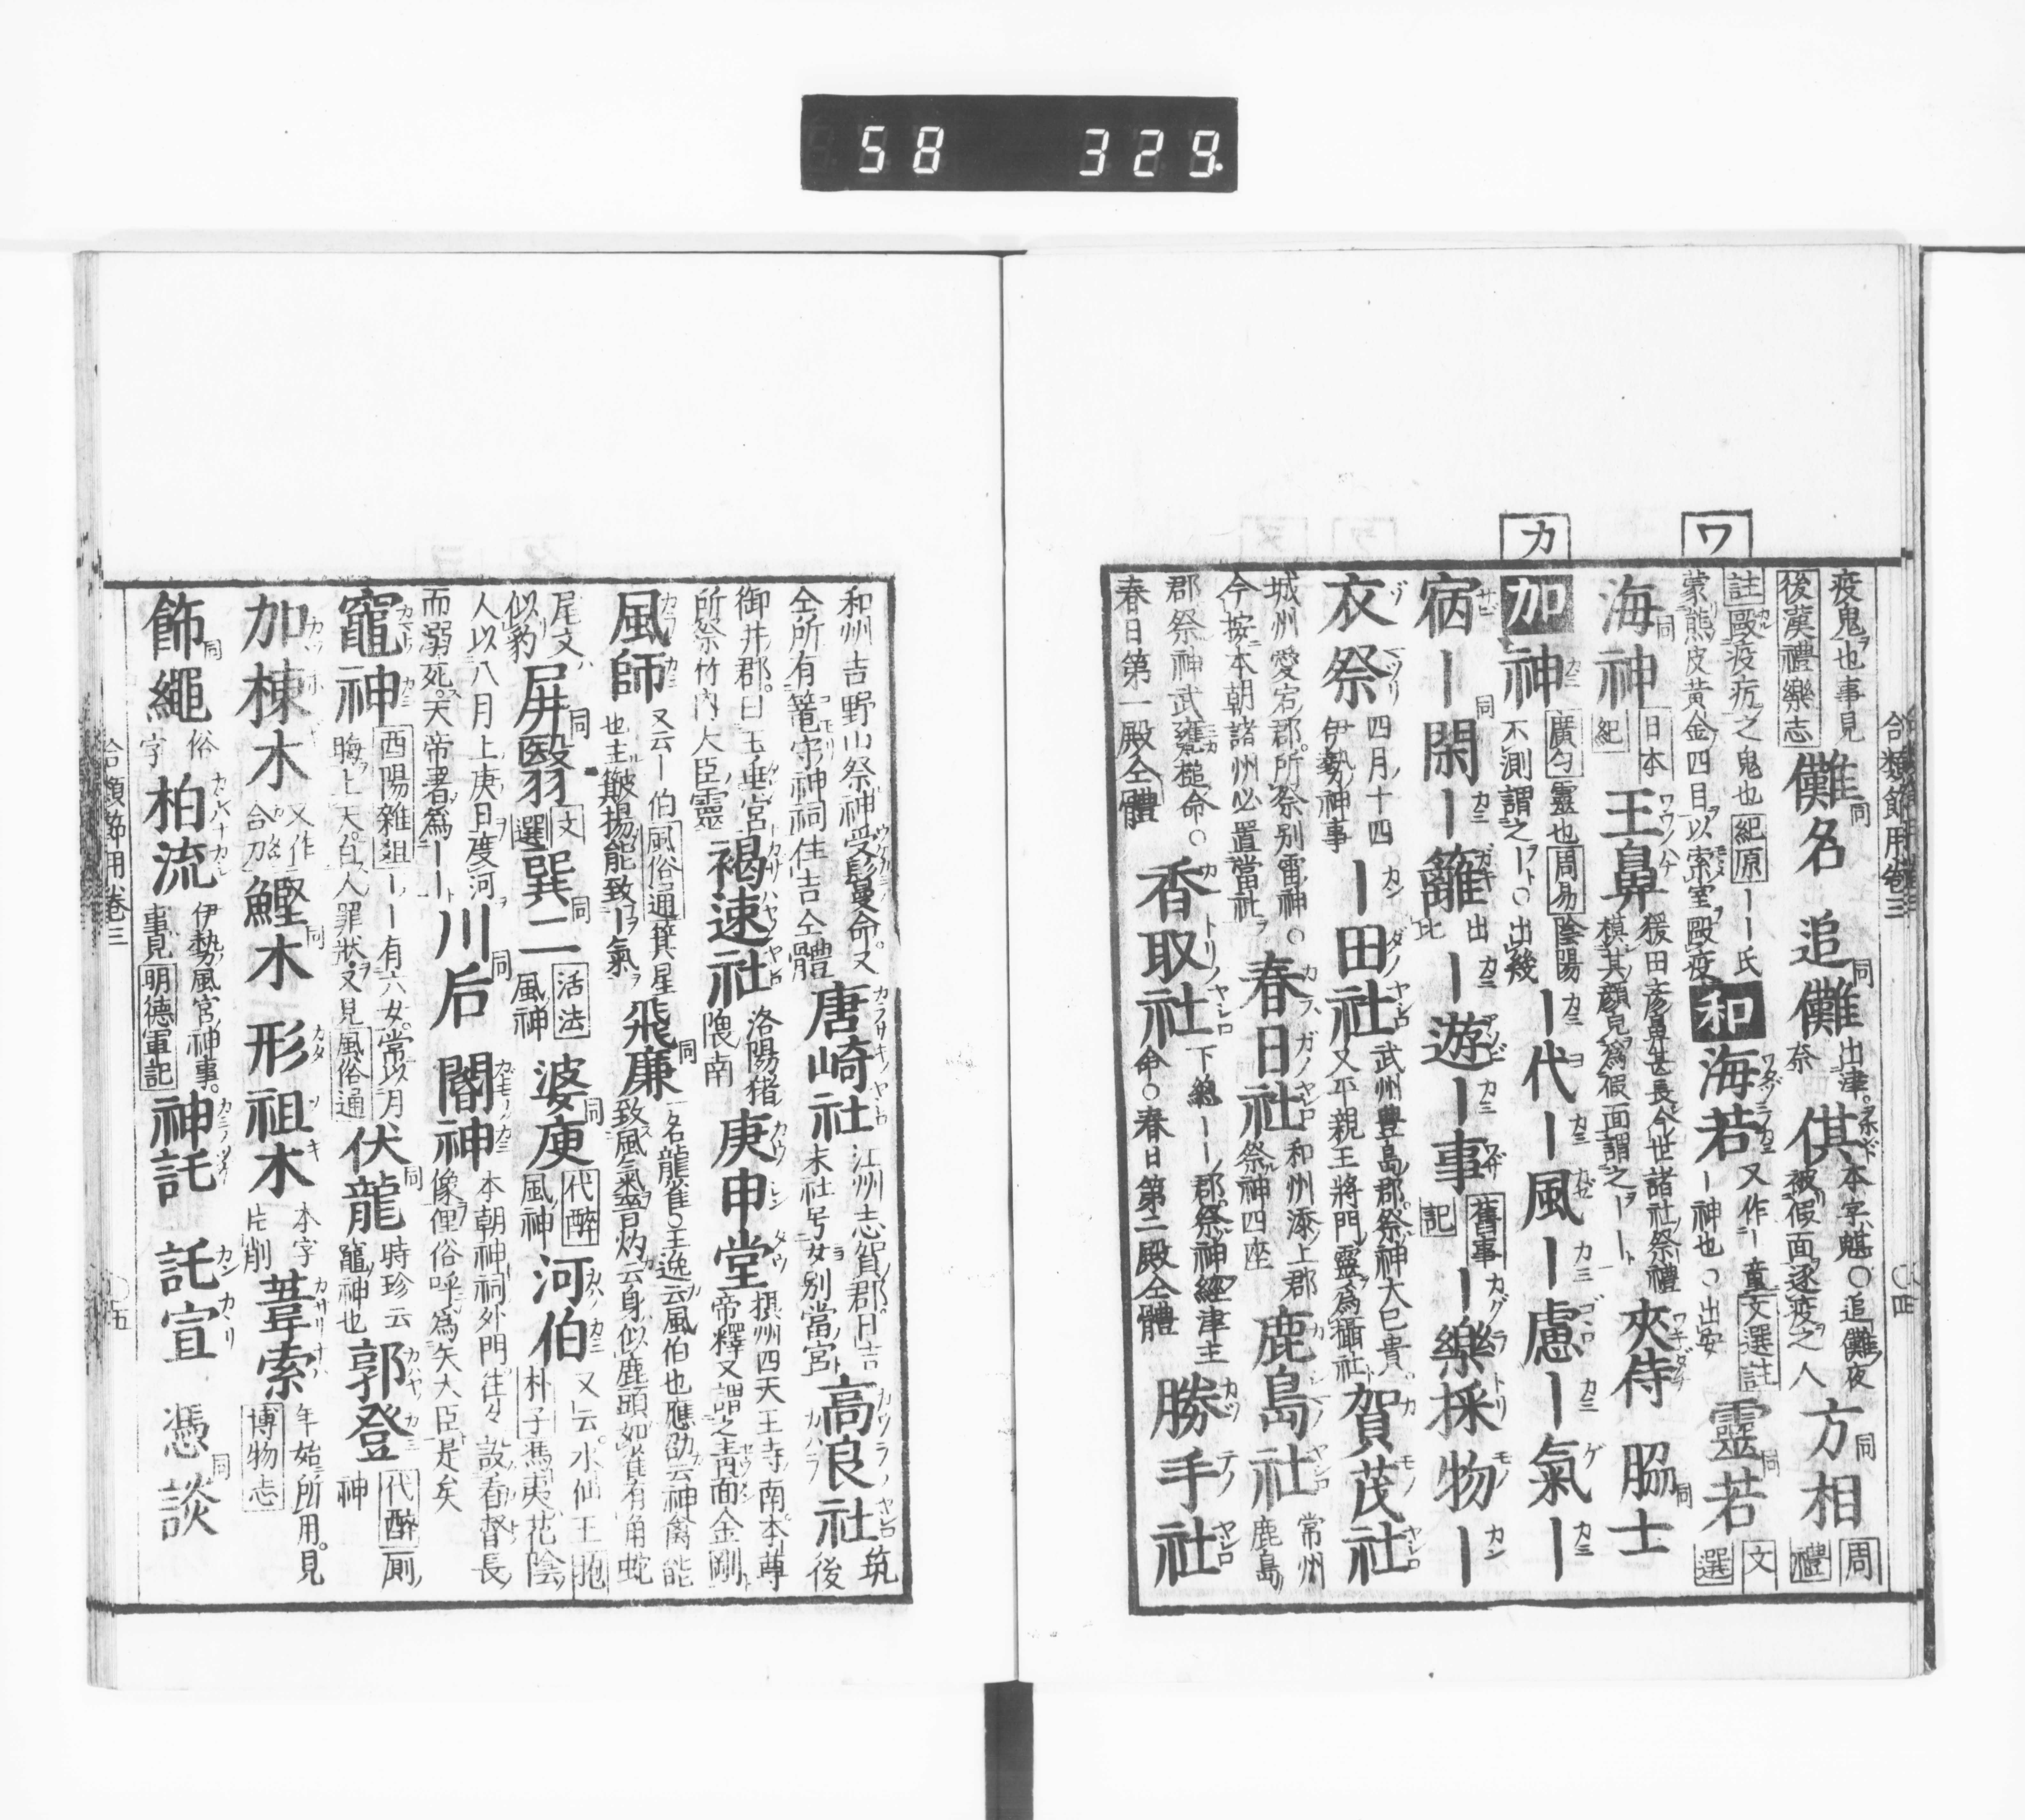 58 329
ワ
カ
合類節用卷三
疫鬼也事見
後漢禮樂志
儺名 同
追儺 同
出津
奈
供
本字魌○追儺夜
被假面逐疫之人
方相 同
周
禮
註毆疫疠之鬼也紀原ーー氏
蒙熊皮黄金四目以索室毆疫
和海若
又作ー童文選註
ー神也○出安
靈若 同
文
選
海神 同
日本
紀
王鼻
猨田彦鼻甚長今世諸社祭禮
模其顔見爲假面謂之ーー
夾侍
脇士 同
加神
廣匀靈也周易陰陽
不測謂之ー○出幾
ー代ー風ー慮ー氣ー
宿ー閑ー籬
出
比
ー遊ー事
舊事
記
ー樂採物ー
衣祭
四月十四
伊勢神事
ー田社
武州豊島郡祭神大巳貴
又平親王將門靈爲攝社
賀茂社
城州愛宕郡所祭别雷神○
今按本朝諸州必置當社
春日社
和州添上郡
祭神四座
鹿島社
常州
鹿島
郡祭神武甕槌命○
春日第一殿仝體
香取社
下總ー郡祭神經津主
命○春日第二殿仝體
勝手社
和州吉野山祭神受鬘命又
仝所有篭守神祠住吉仝體
唐崎社
江州志賀郡日吉
末社号女别當宮
高良社
筑
後
御井郡曰玉垂宮
所祭竹内大臣靈
褐速社
洛陽猪
隈南
庚申堂
摂州四天王寺南本尊
帝釋又謂之青面金剛
風師
又云ー伯風俗通箕星
也主簸揚能致ー氣
飛廉 同
一名龍雀○王逸云風伯也應劭云神禽能
致風氣晋灼云身似鹿頭如雀有角蛇
尾文
似豹
屏翳 同
文
選
巽二 同
活法
風神
婆庾 同
代醉
風神
河伯
又云水仙王抱
朴子馮夷花陰
人以八月上庚日度河
而溺死天帝署爲ーー
川后 同
閽神
本朝神祠外門往々設看督長
像俚俗呼爲矢大臣是矣
竈神
酉陽雜俎ーー有六女常以月
晦上天白人罪状又見風俗通
伏龍 同
時珍云
竈神也
郭登
代醉厠
神
加棟木
又作
合刀
鰹木 同
形祖木
本字
片削
葺索
年始所用見
博物志
飾繩 同
俗
字
柏流
伊勢風宮神事
事見明德軍記
神託
託宣
憑談 同
合類節用卷三